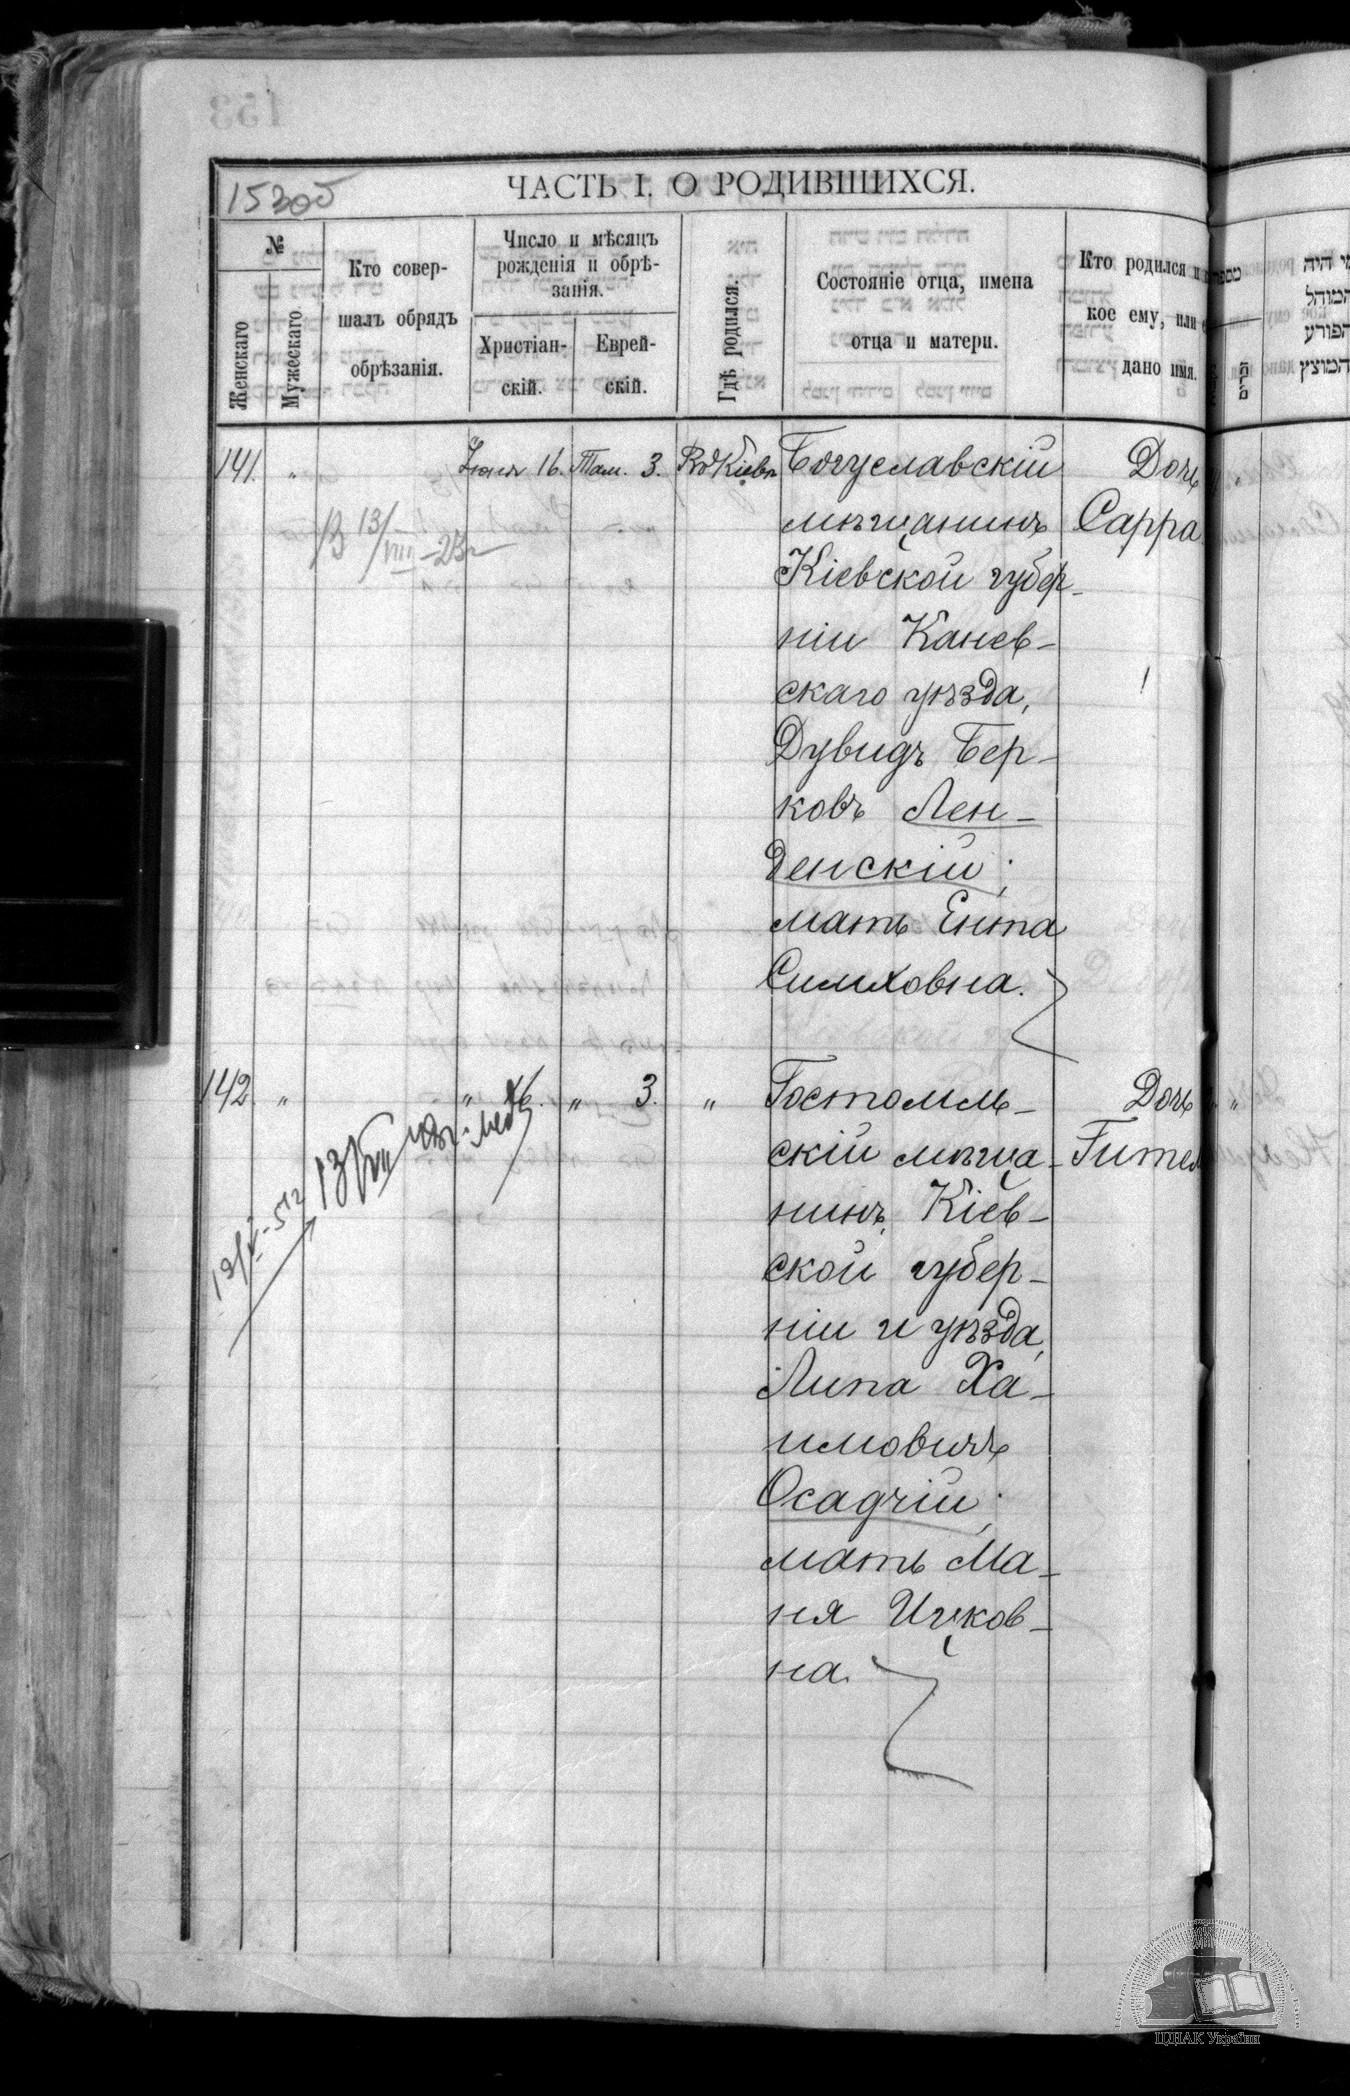 153об
ЧАСТЬ I. О РОДИВШИХСЯ.
№
Женскаго
Мужескаго
Кто совер-
шалъ обрядъ
обрѣзанія.
Число и мѣсяцъ
рожденія и обрѣ-
занія.
Христіан-
скій.
Еврей-
скій.
Гдѣ родился.
Состояніе отца, имена
отца и матери.
Кто родился и
кое ему, или
дано имя.
141. " Іюня 16. Там. 3. Въ Кіевѣ Богуславскій Дочь
мѣщанинъ Сарра
Кіевской губер-
ніи Канев-
скаго уѣзда,
Дувидъ Бер-
ковъ Лен-
денскій;
мать Ента
Симховна.
В 13/VIII-23г
142. " " 16. " 3. " Гостомль- Дочь
скій мѣща- Гител
нинъ, Кіев-
ской губер-
ніи и уѣзда,
Липа Ха-
имовичъ
Осадчій;
мать Ма-
ня Ицков-
на.
היה
המוהל
הפורע
המוצץ
ЦДІАК України